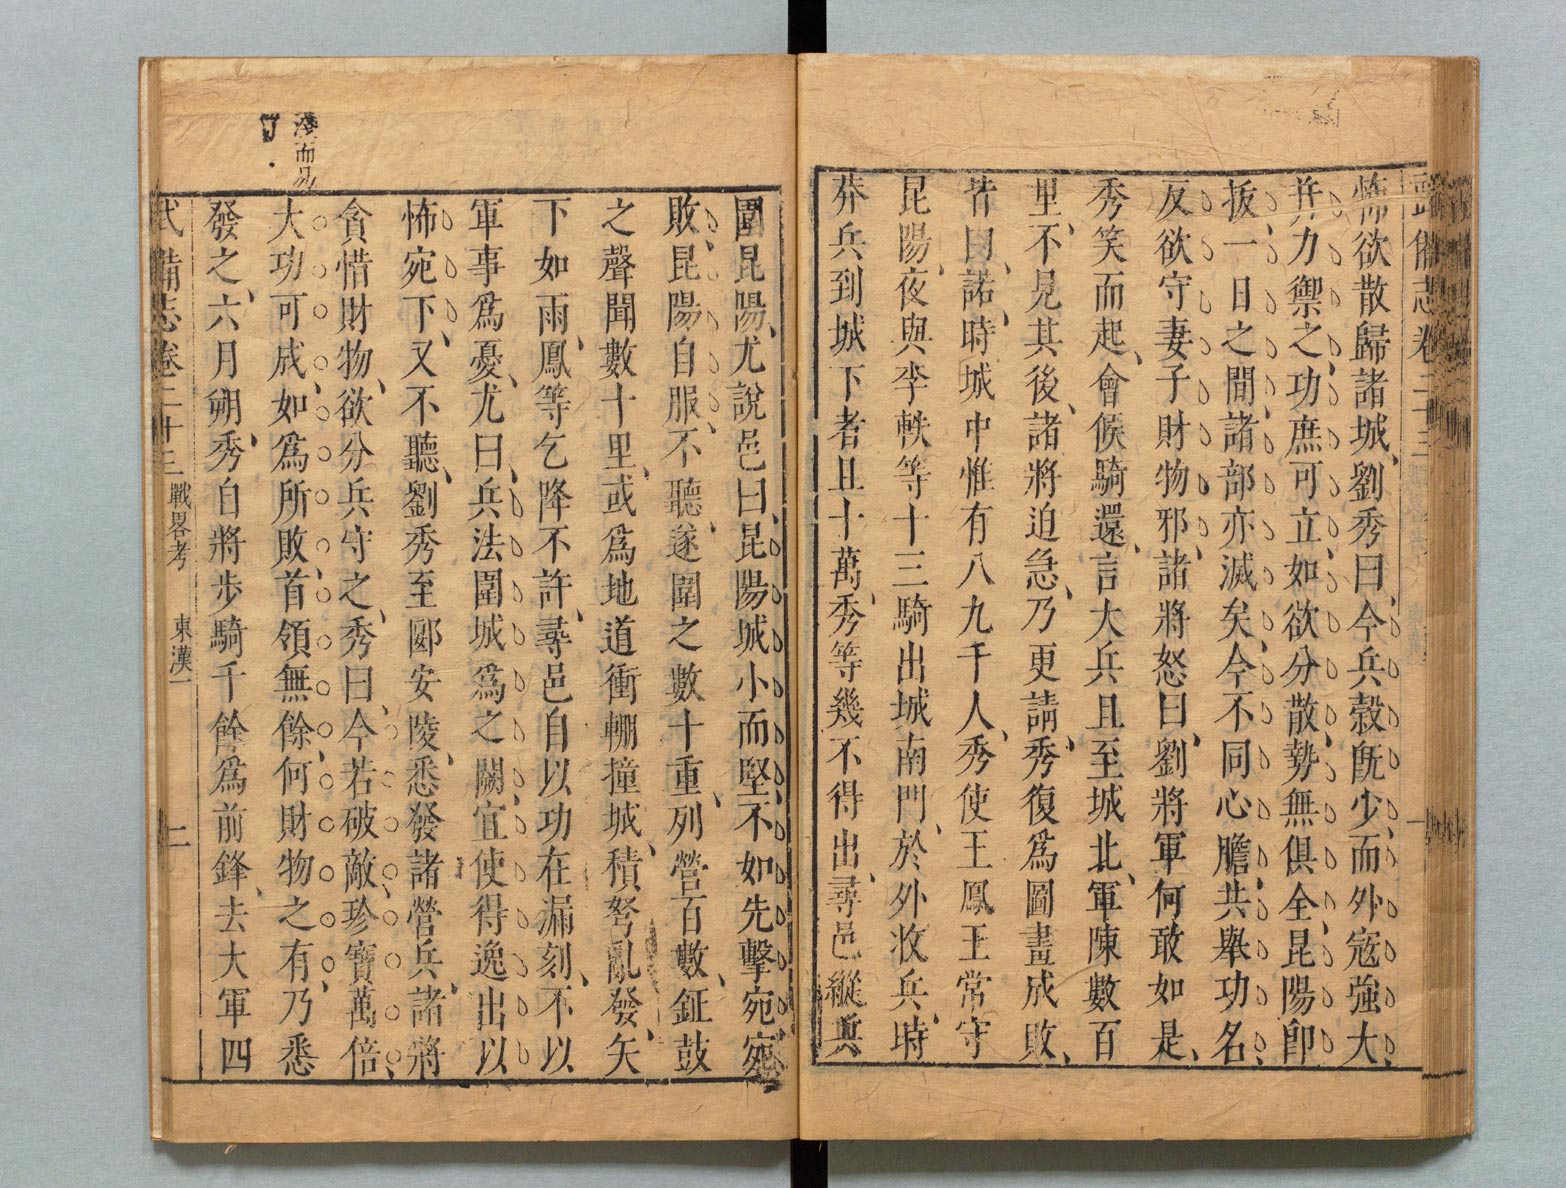 武備志卷二十三
怖欲散歸諸城劉秀曰今兵穀旣少而外寇強大
并力禦之功庶可立如欲分散勢無俱全昆陽卽
拔一日之間諸部亦滅矣今不同心膽共舉功名
反欲守妻子財物邪諸將怒曰劉將軍何敢如是
秀笑而起會候騎還言大兵且至城北軍陳數百
里不見其後諸將迫急乃更請秀復爲圖畫成敗
皆曰諾時城中惟有八九千人秀使王鳳王常守
昆陽夜與李軼等十三騎出城南門於外收兵時
莽兵到城下者且十萬秀等幾不得出尋邑縱兵
圍昆陽尤說邑曰昆陽城小而堅不如先擊宛宛
敗昆陽自服不聽遂圍之數十重列營百數鉦鼓
之聲聞數十里或爲地道衝輣撞城積弩亂發矢
下如雨鳳等乞降不許尋邑自以功在漏刻不以
軍事爲憂尤曰兵法圍城爲之闕宜使得逸出以
怖宛下又不聽劉秀至郾安陵悉發諸營兵諸將
貪惜財物欲分兵守之秀曰今若破敵珍寶萬倍
大功可成如爲所敗首領無餘何財物之有乃悉
發之六月朔秀自將步騎千餘爲前鋒去大軍四
淺而易
武備志卷二十三 戰畧考 東漢一 二